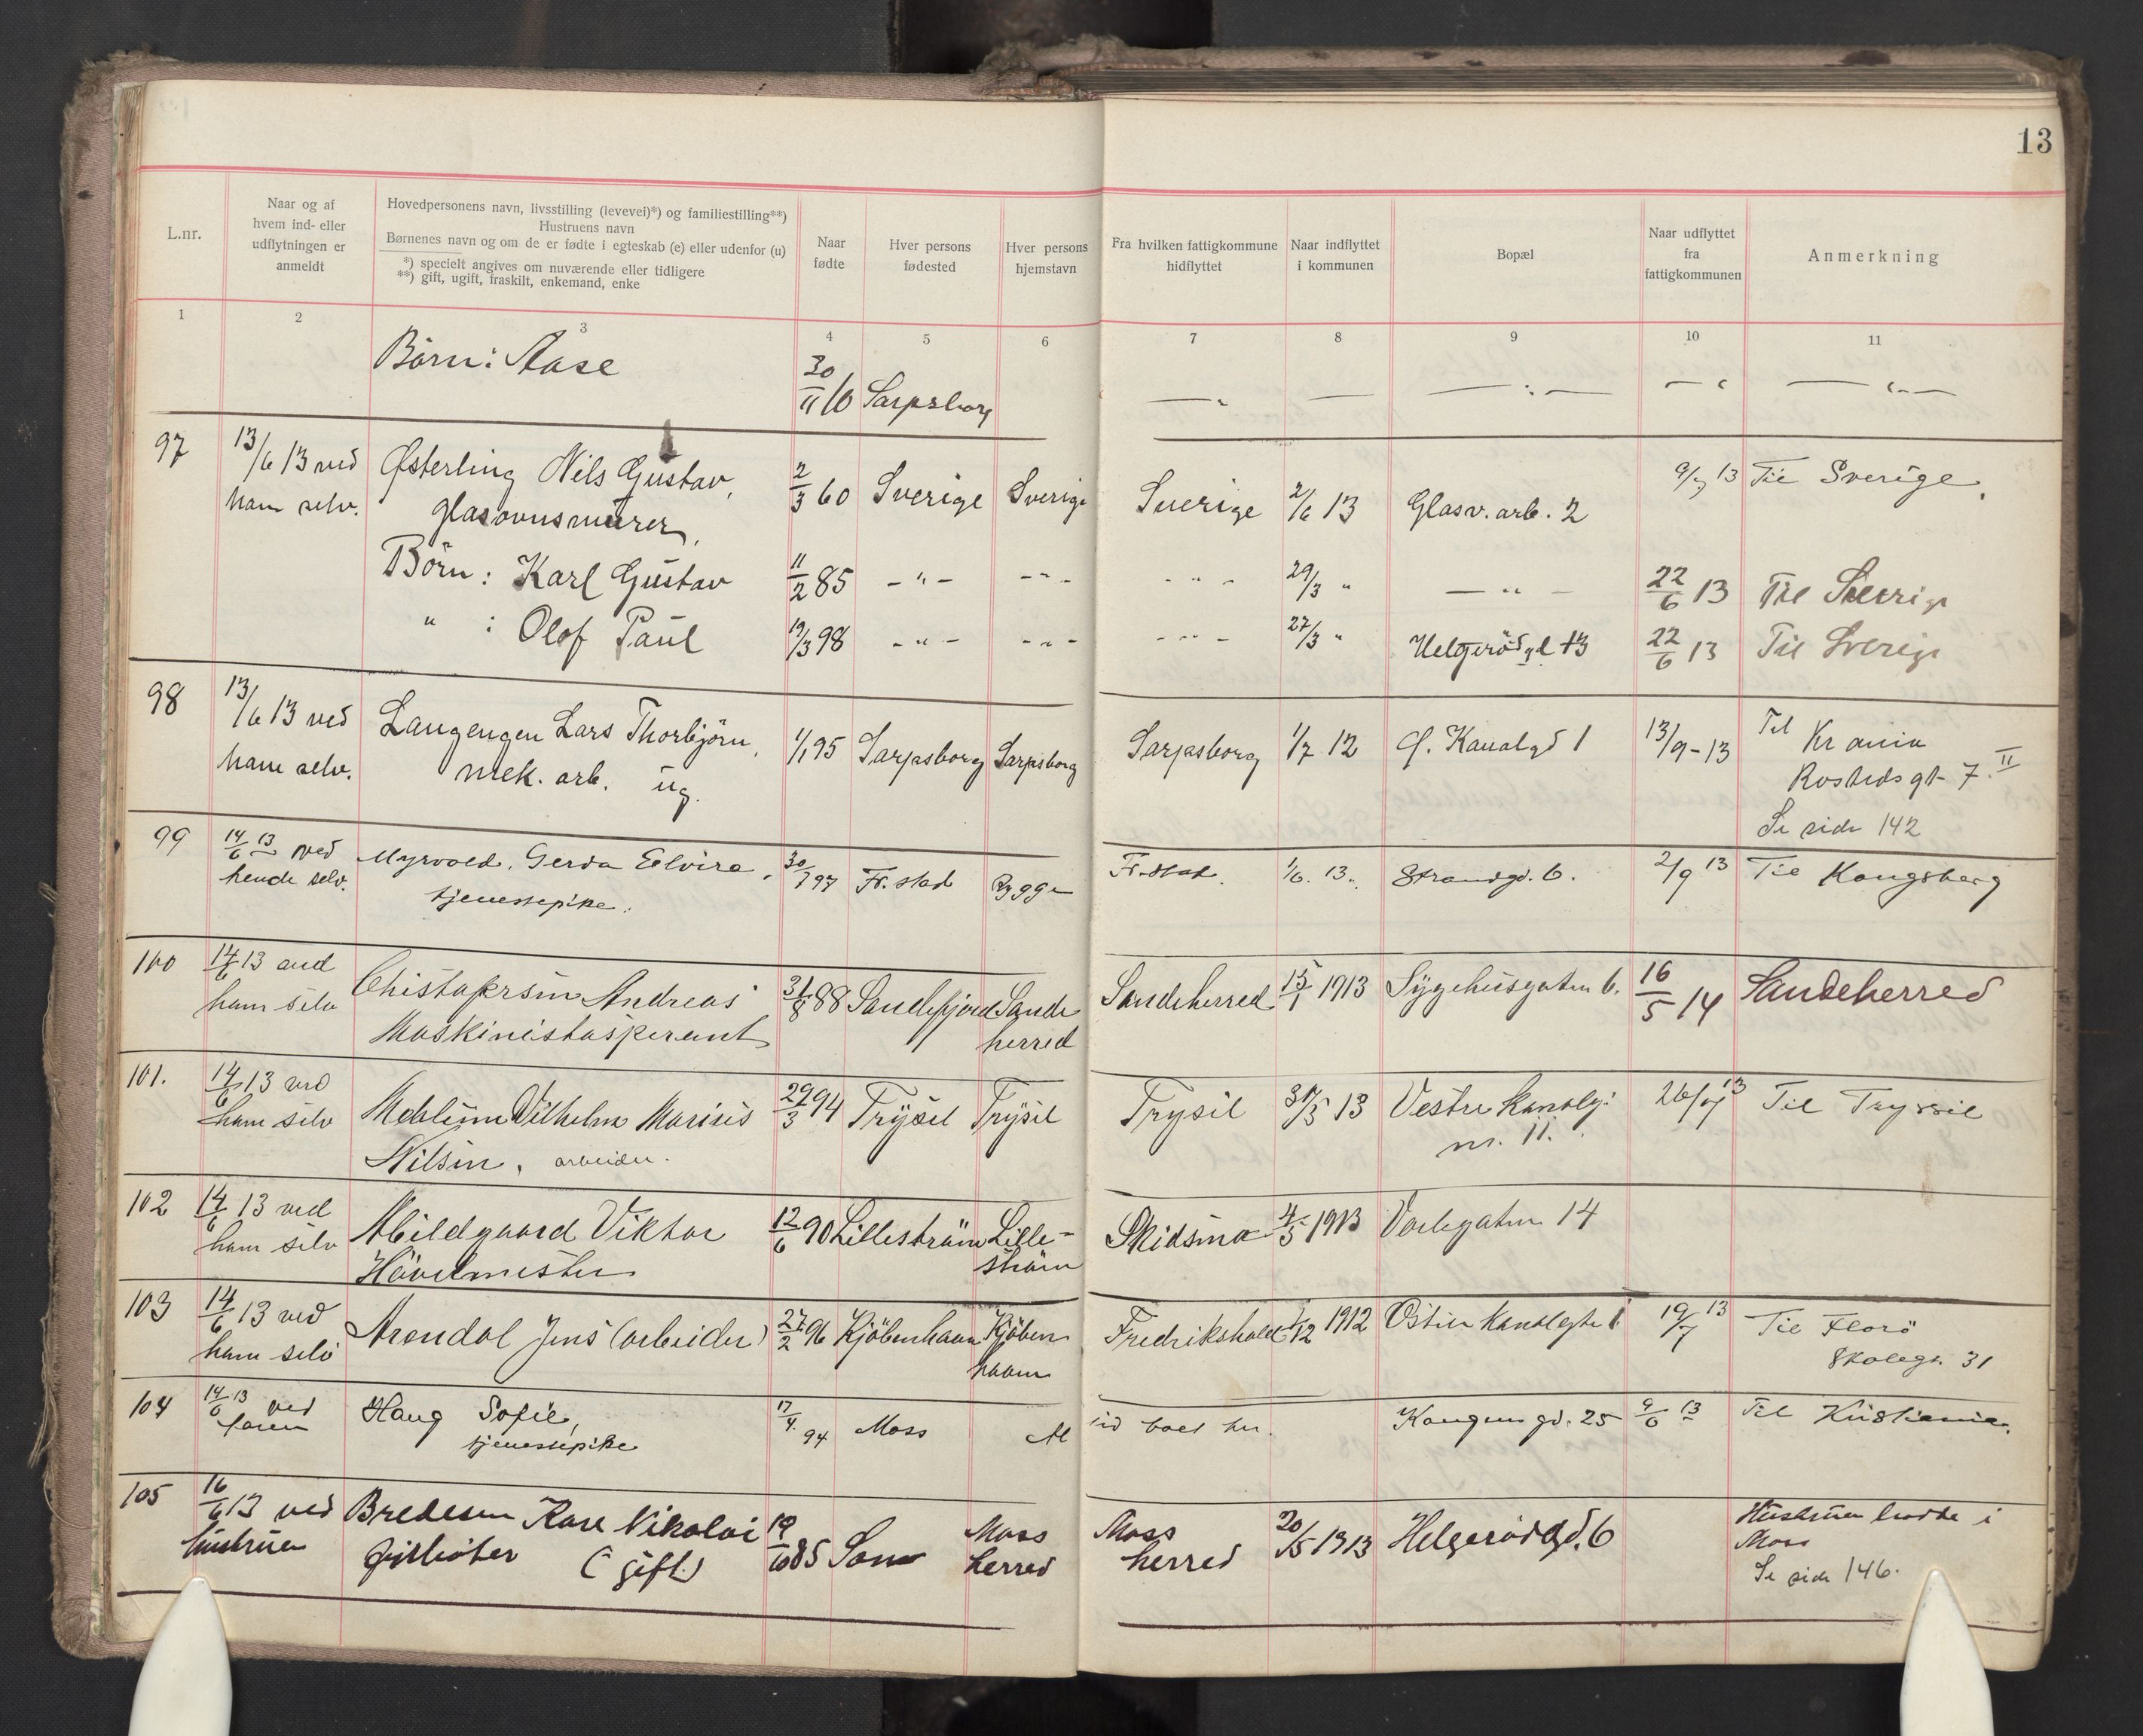 13
L.nr.
Naar og af
hvem ind- eller
udflytningen er
anmeldt
Hovedpersonens navn, livsstilling (levevei)*) og familiestilling**)
Hustruens navn
Børnenes navn og om de er fødte i egteskab (e) eller udenfor (u)
*) specielt angives om nuværende eller tidligere
**) gift, ugift, fraskilt, enkemand, enke
Naar
fødte
Hver persons
fødested
Hver persons
hjemstavn
Fra hvilken fattigkommune
hidflyttet
Naar indflyttet
i kommunen
Bopæl
Naar udflyttet
fra
fattigkommunen
Anmerkning
1 2 3 4 5 6 7 8 9 10 11
Börn: Aase 30/11 10 Sarpsborg
97 13/6 13 ved Østerling Nils Gustav, 2/3 60 Sverige Sverige Sverige 2/6 13 Glasv. arb. 2 9/7 13 Til Sverige.
ham selv. glasovnsmurer,
Börn: Karl Gustav 11/2 85 - " - - " - - " - 29/3 " - " - 22/6 13 Til Sverige
" : Olof Paul 19/3 98 - " - - " - - " - 27/3 " Helgerödgd 13 22/6 13 Til Sverige
98 13/6 13 ved Langengen Lars Thorbjörn, 1/1 95 Sarpsborg Sarpsborg Sarpsborg 1/7 12 Ø. Kanalgd 1 13/9-13 Til Kr ania
ham selv. mek. arb. ug. Rostedsgt 7 II
Se side 142
99 14/6 13 ved Myrvold, Gerda Elvira, 30/7 97 Fr.stad Rygge Fr.stad. 1/6. 13. Strandgd. 6. 2/9 13 Til Kongsberg
hende selv. tjenestepike.
100 14/6 13 ved Christofersen Andreas 31/8 88 Sandefjord Sande Sandeherred 15/1 1913 Sygehusgaten 6. 16/5 14 Sandeherred
ham selv Maskinistaspirant herred
101. 14/6 13 ved Mehlum Vilhelm Marius 29/3 94 Trysil Trysil Trysil 31/5 13 Vestre Kanalg: 26/7 13 Til Tryssil
ham selv Nilsen, arbeider. nr. 11.
102 14/6 13 ved Mildgaard Viktor 12/6 90 Lilleström Lille- Skidsmo 4/5 1913 Varlegaten 14
ham selv Hövelmester ström
103 14/6 13 ved Arendal Jens (arbeider) 27/2 96 Kjöbenhavn Kjöben Fredrikshald 1/12 1912 Östre Kanalgt 1 19/7 13 Til Florö
ham selv havn Skolegt. 31
104 14/6 13 ved Haug Sofie, 17/4. 94 Moss Altid boet her. Kongensgd. 25 9/6 13 Til Kristiania.
faren tjenestepike
105 16/6 13 ved Bredesen Kare Nikolai 19/10 85 Son Moss Moss 20/5 1913 Helgerödgd. 6 Hustruen bodde i
hustruen fyrböter (gift) herred herred Moss
Se side 146.